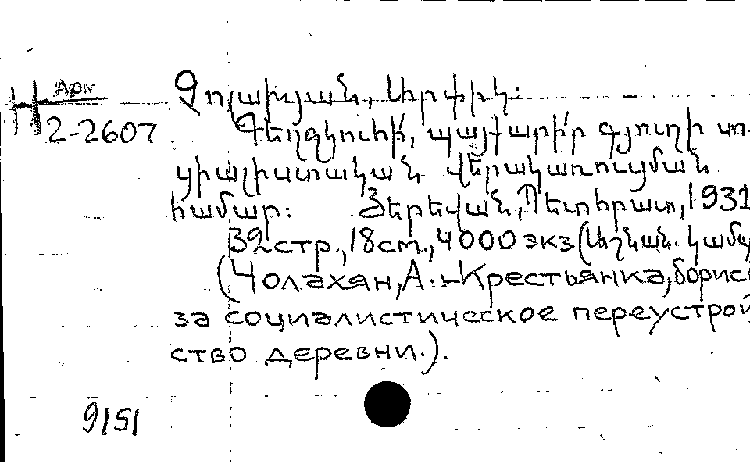 Арм
Н 2-2607
Չոլախյան, Արփիկ:
Գեղջկուհի՛, պայքարի՛ր գյուղի սո-
ցիալիստական վերակառուցման
համար: Յերեվան, Պետհրատ, 1931
32стр., 18см., 4000 экз (Աշխ.
(Чолахян, А.-Крестьянка, борись
за социалистическое переустрой
ство деревни.).
9151